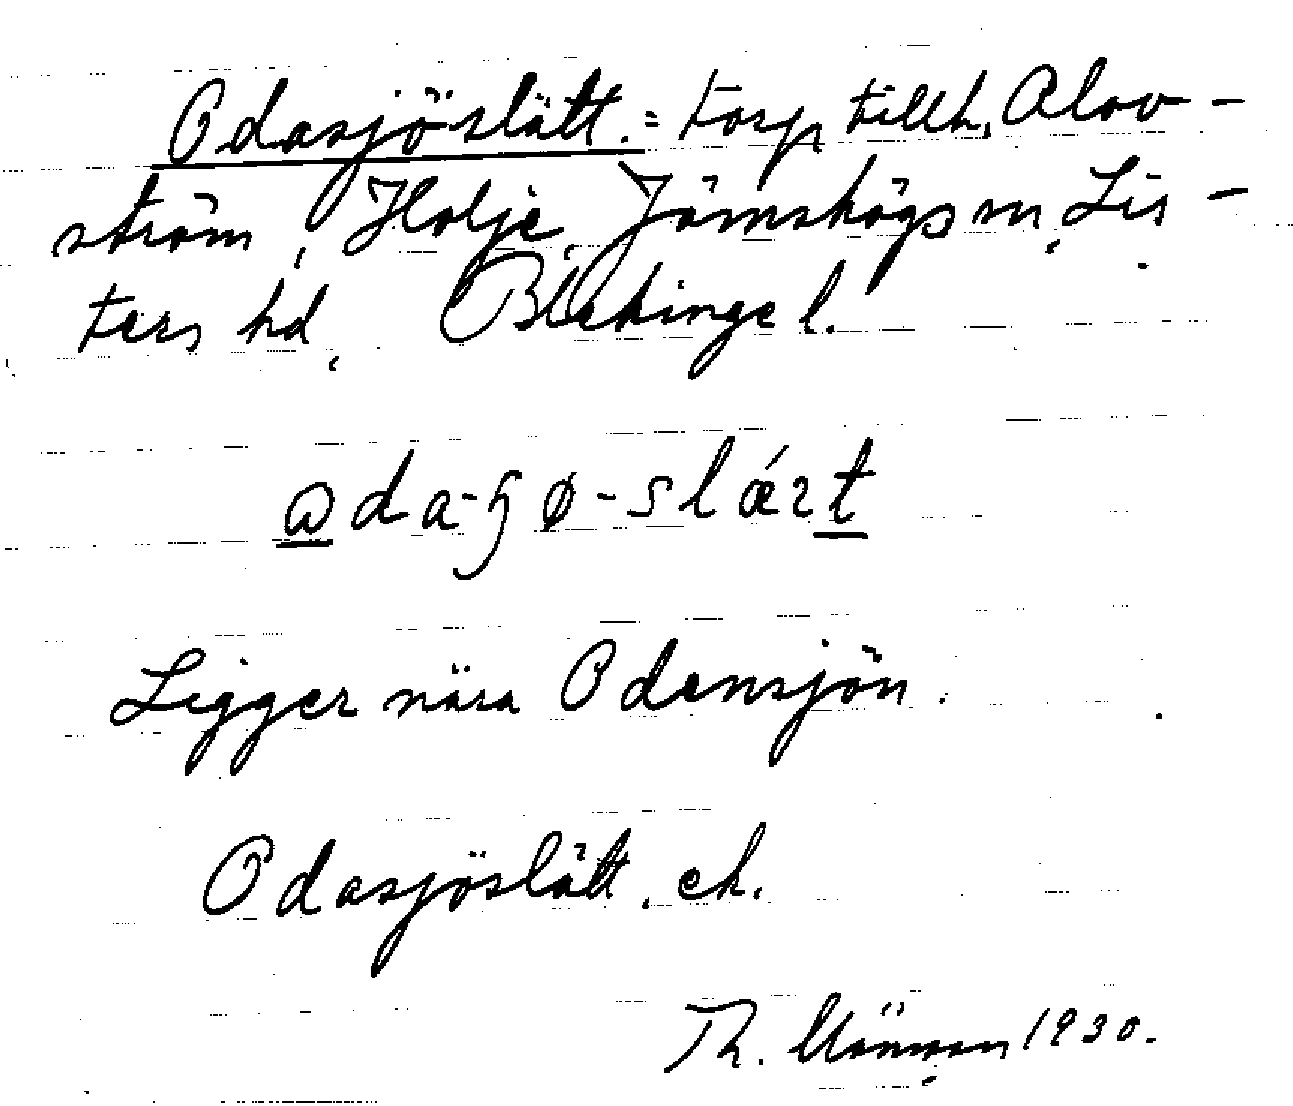 Odasjöslätt. = torp, tillh. Alov-
ström, Holje, Jämshögs sn, Lis-
ters hd, Blekinge l.
oda-ɧø-slǽt
Ligger nära Odensjön.
Odasjöslätt. ek.
Th. 1930.